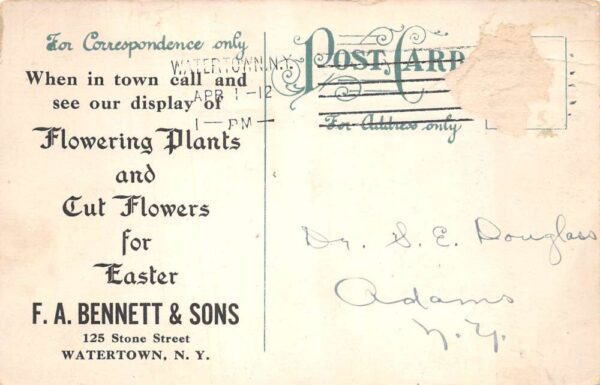 For Correspondence only
When in town call and
see our display of
Flowering Plants
and
Cut Flowers
for
Easter
F. A. BENNETT & SONS
125 Stone Street
WATERTOWN, N. Y.
WATERTOWN, N.Y.
APR 1 - 12
1 - PM -
POST CARD
For Address only
S.
Dr. S. E. Douglass
Adams
N.Y.